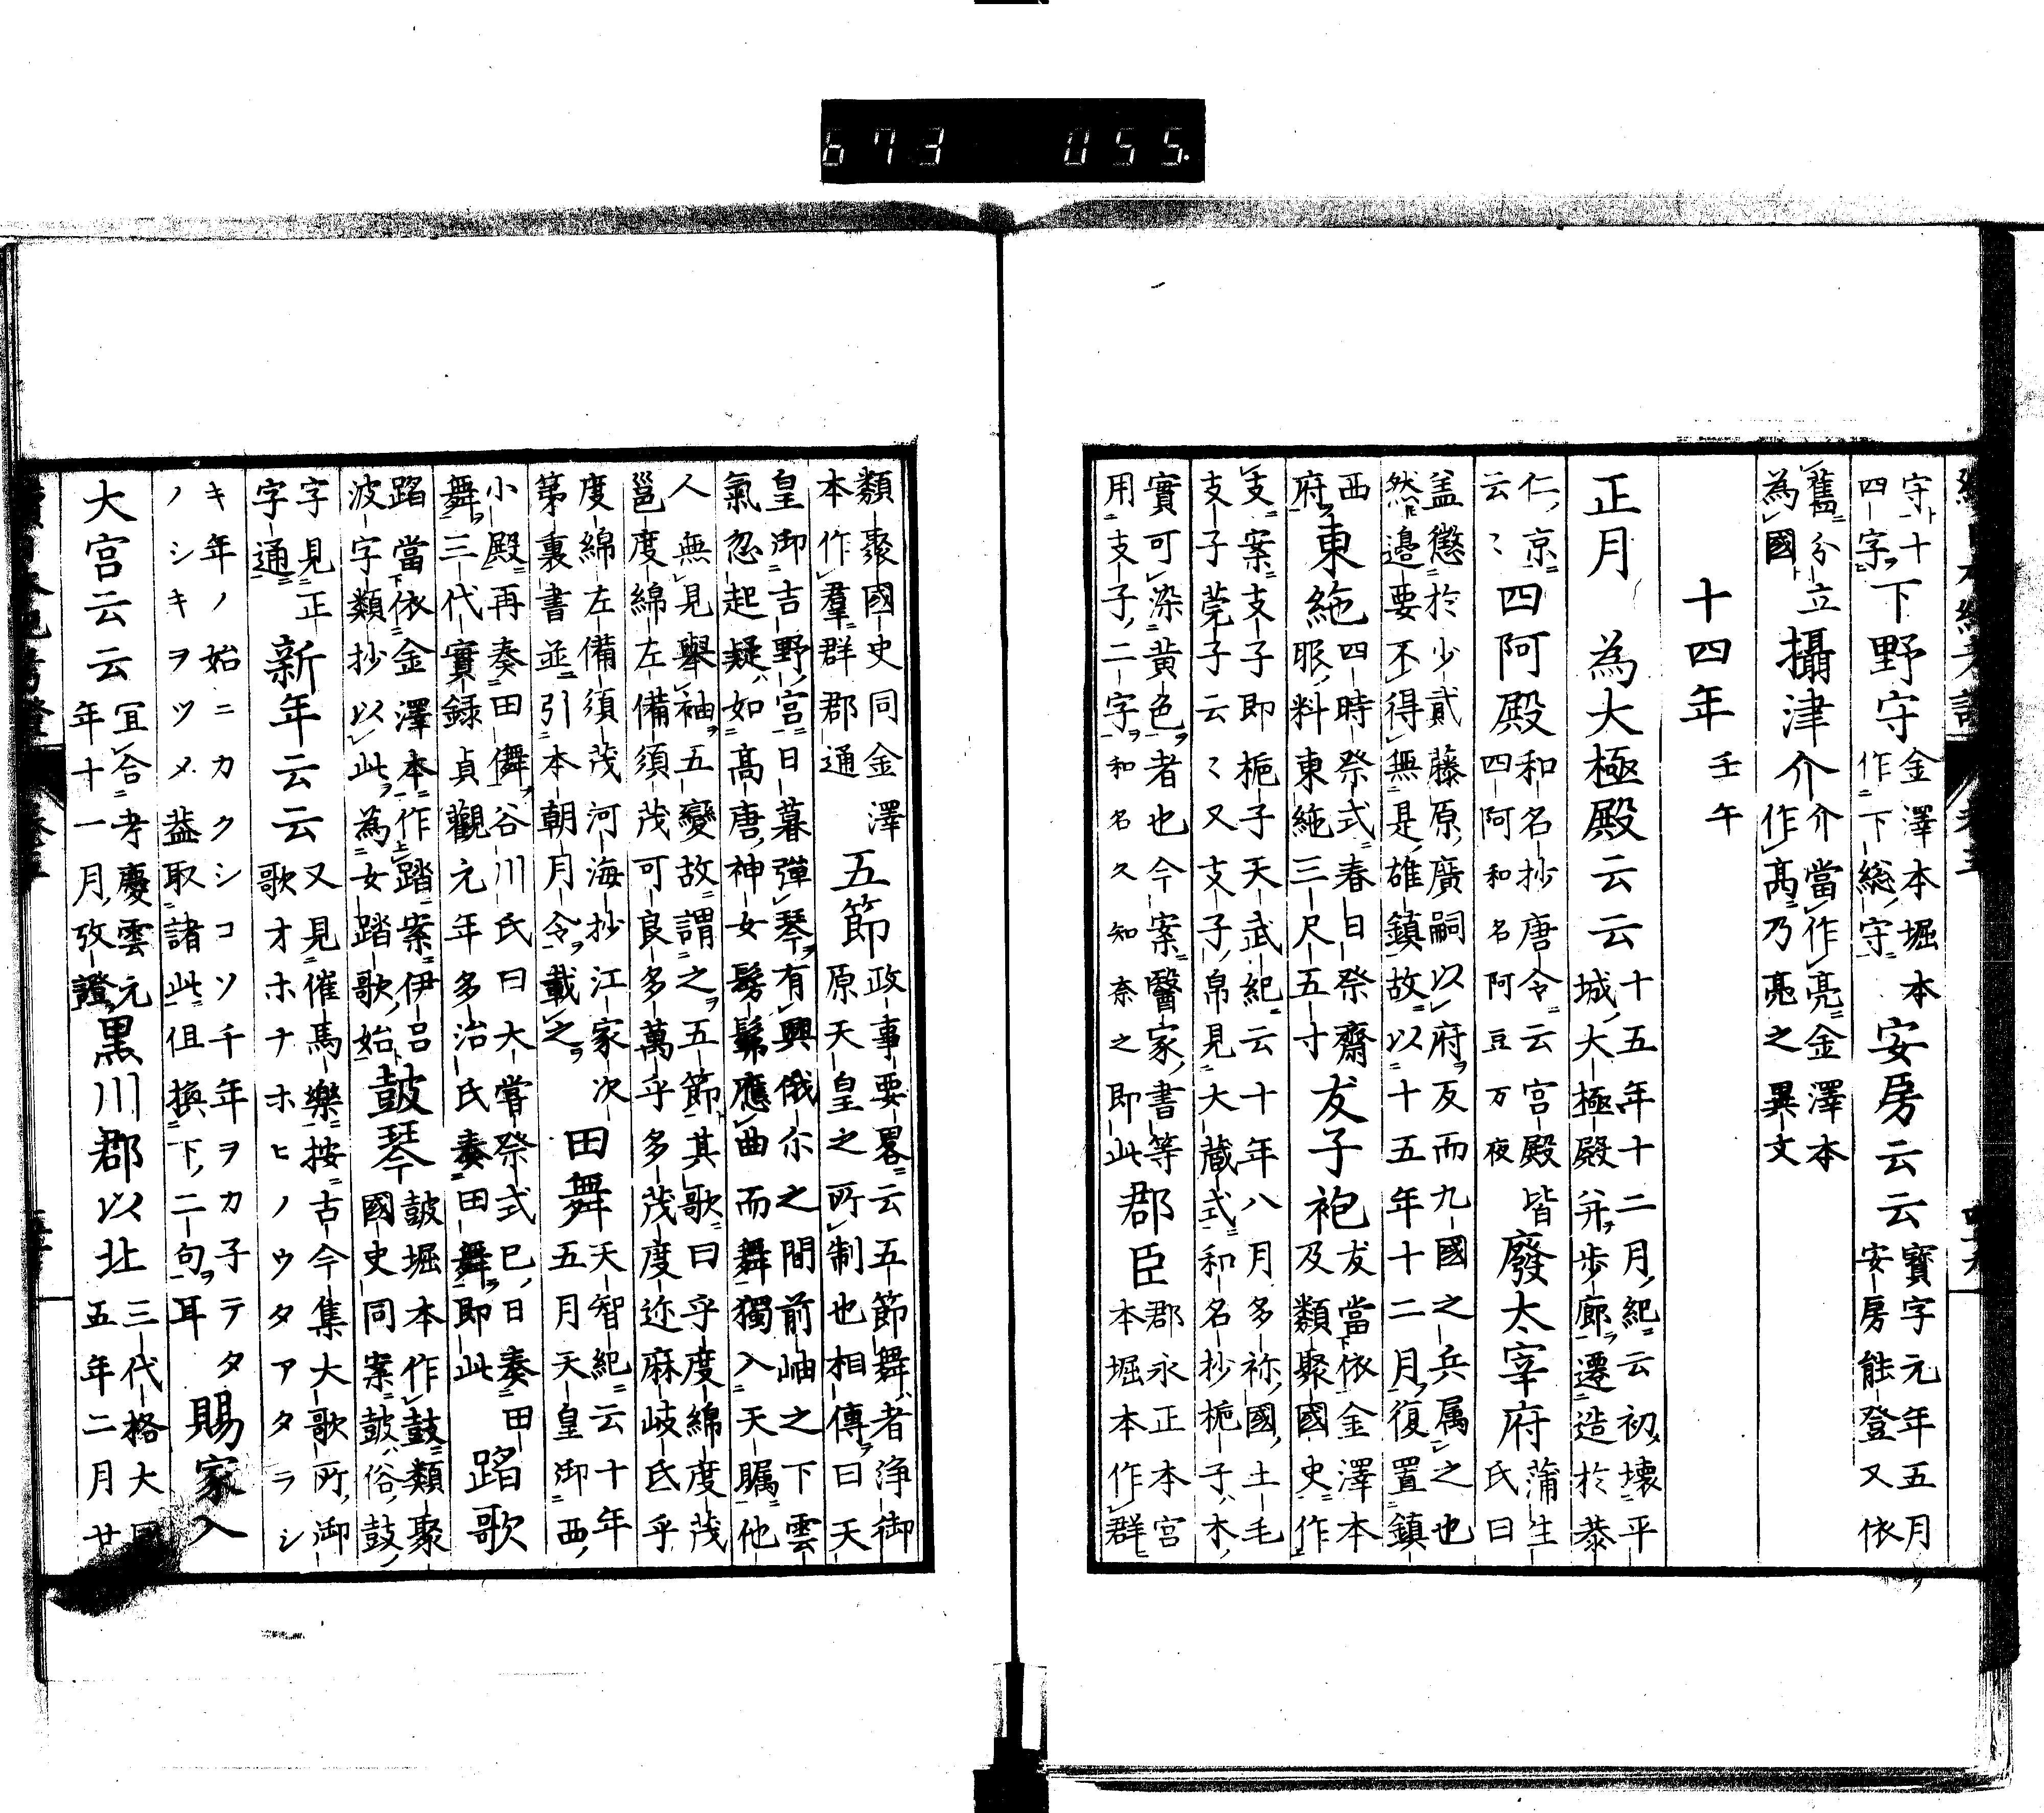 673 055.
守十
四字下野守金澤本堀本
作下総守安房云云寶字元年五月
安房能登又依
舊分立
為國攝津介介當作亮金澤本
作髙乃亮之異文
十四年壬午
正月 為大極殿云云十五年十二月紀云初壞平
城大極殿并歩廊遷造於恭
仁京
云〻四阿殿和名抄唐令云宮殿皆
四阿和名阿豆万夜廢太宰府蒲生
氏曰
盖懲於少貳藤原廣嗣以府反而九國之兵属之也
然邉要不得無是雄鎮故以十五年十二月復置鎮
西
府東絁四時祭式春日祭齋
服料東絁三尺五寸友子袍友當依金澤本
及類聚國史作
支案支子即梔子天武紀云十年八月多祢國土毛
支子莞子云〻又支子帛見大蔵式和名抄梔子木
實可染黄色者也今案醫家書等
用支子二字和名久知奈之即此郡臣郡永正本宮
本堀本作群
類聚國史同金澤
本作羣群郡通五節政事要畧云五節舞者浄御
原天皇之所制也相傳曰天
皇御吉野宮日暮彈琴有興俄尓之間前岫之下雲
氣忽起疑如髙唐神女髣髴應曲而舞獨入天矚他
人無見舉袖五變故謂之五節其歌曰乎度綿度茂
邕度綿左備須茂可良多萬乎多茂度迩麻岐氐乎
度綿左備須茂河海抄江家次
第裏書並引本朝月令載之田舞天智紀云十年
五月天皇御西
小殿再奏田儛谷川氏曰大甞祭式巳日奏田
舞三代實録貞觀元年多治氏奏田舞即此蹈歌
蹈當依金澤本作踏案伊呂
波字類抄以此為女踏歌始皷琴皷堀本作鼓類聚
國史同案皷俗鼓
字見正
字通新年云云又見催馬樂按古今集大歌所御
歌オホナホヒノウタアタラシ
キ年ノ始ニカクシコソ千年ヲカ子テタ
ノシキヲツメ葢取諸此但換下二句耳賜家入
大宮云云宜合考慶雲元
年十一月攷證黒川郡以北三代格大同
五年二月廿